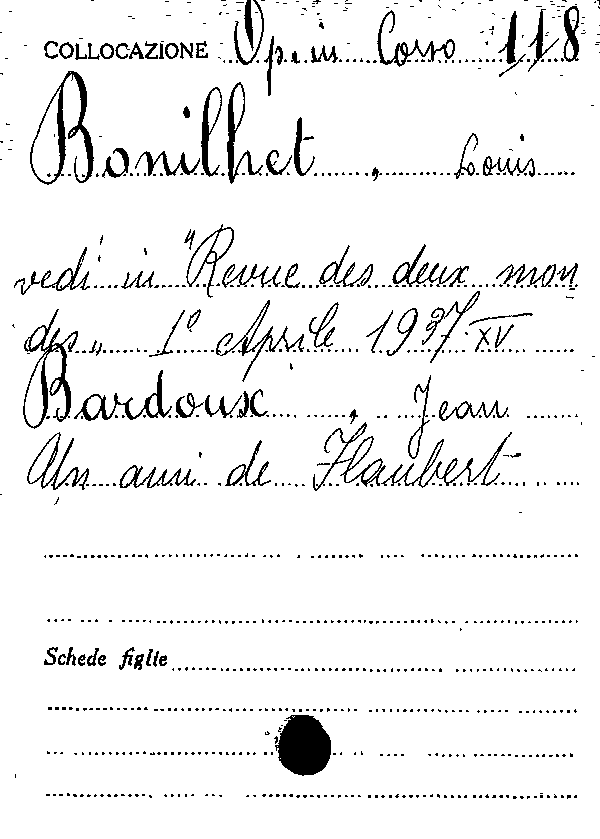 COLLOCAZIONE Op. in Corso 118
Bonilhet, Louis
vedi in "Revue des deux mon
des„ 1º Aprile 1937. XV
Bardoux, Jean
Un ami de Flaubert
Schede figlie